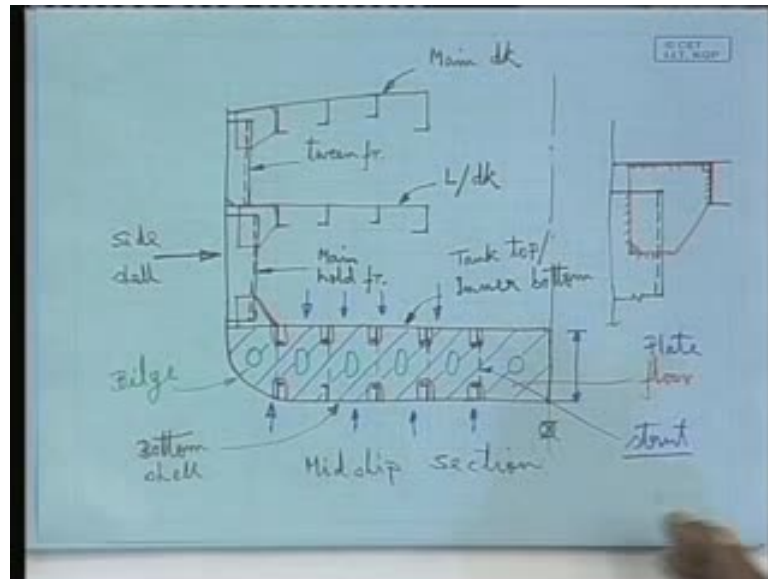 © CET
I.I.T. KGP
Main dk
tween fr.
L/dk
side
shell
Main
hold fr.
Tank top/
Inner bottom
Bilge
Plate
floor
Bottom
shell
strut
Midship section